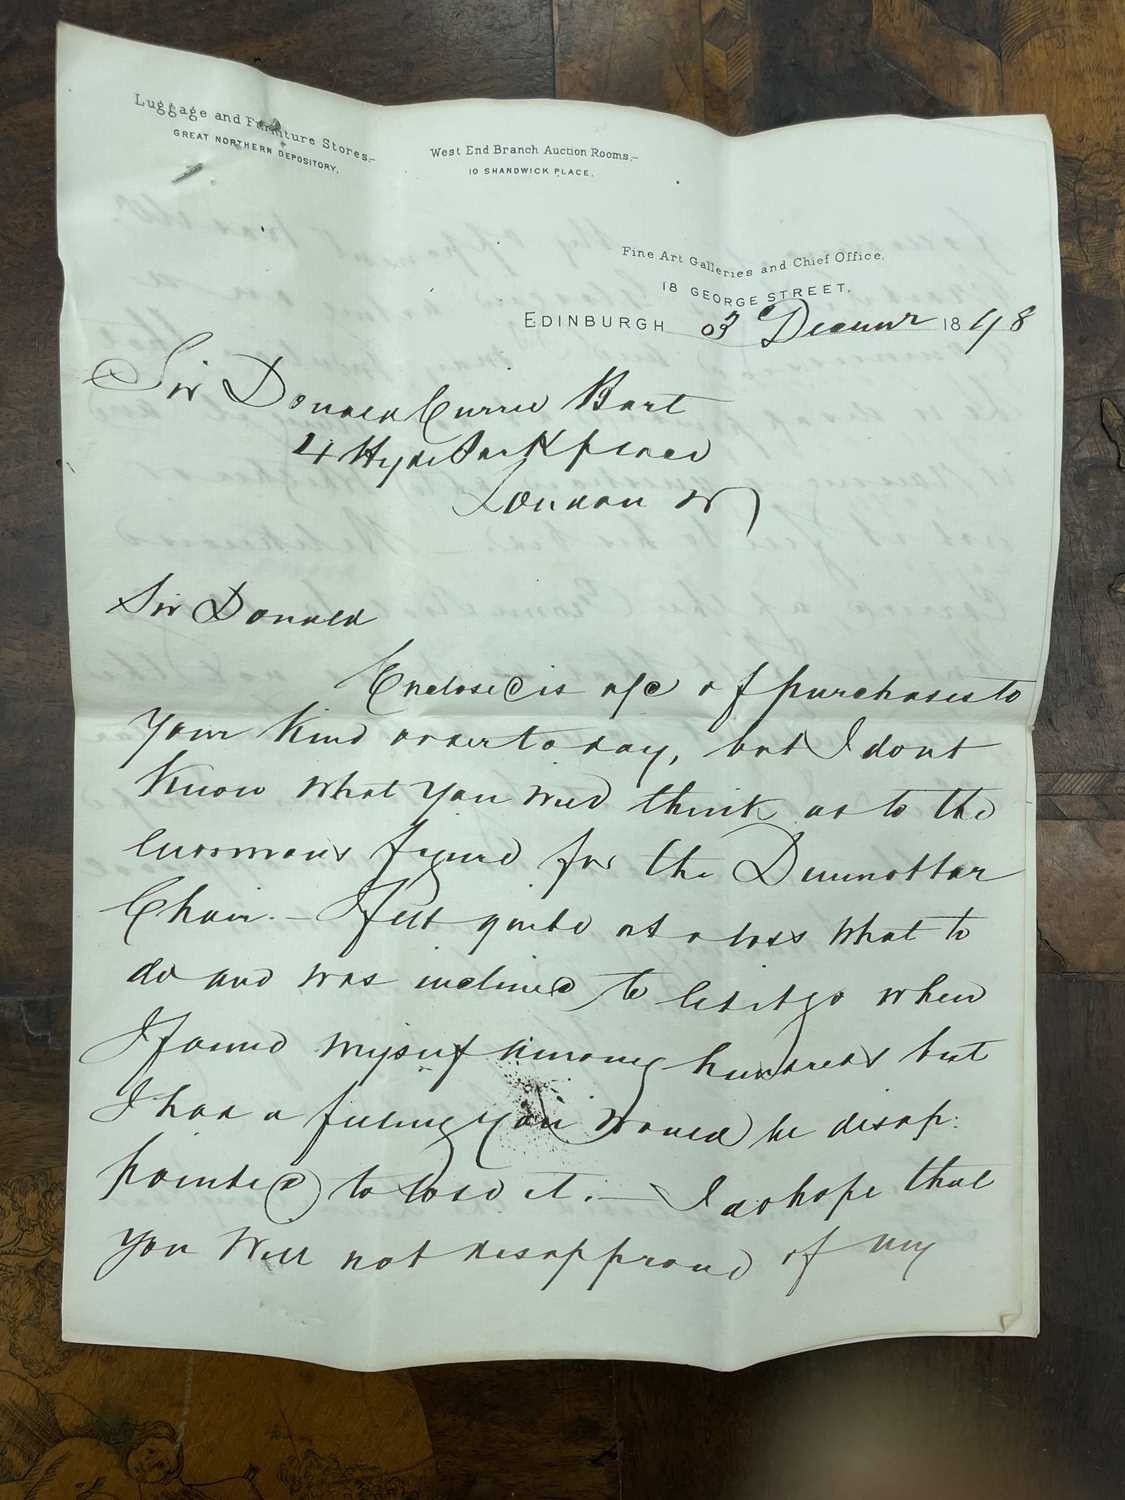 Luggage and Furniture Stores,-
GREAT NORTHERN DEPOSITORY,
West End Branch Auction Rooms,-
10 SHANDWICK PLACE,
Fine Art Galleries and Chief Office,
18 GEORGE STREET,
EDINBURGH 03 Decemr 1898
Sir Donald Currie Bart
4 Hyde Park place
London W
Sir Donald
Enclosed is a/c of purchases to
your kind order to day, but I dont
know what you will think as to the
enormous figure for the Dunnottar
Chair. — I felt quite at a loss what to
do and was inclined to let it go when
I found myself among hundreds but
I had a feeling you would be disap:
pointed to lose it. — I do hope that
you will not disapprove of my